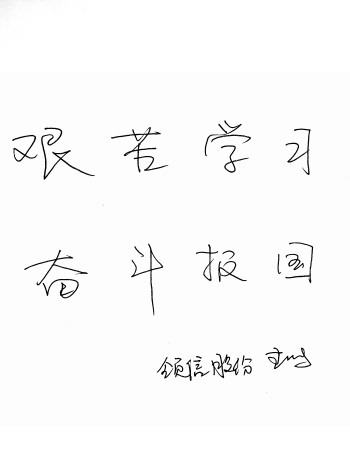 艰苦学习
奋斗报国
领信股份